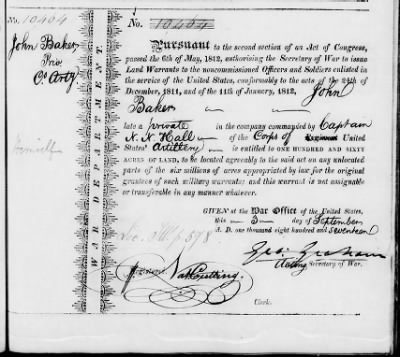 No. 10464
No. 10464
John Baker
Priv
Co Arty
himself
WAR DEPARTMENT
Pursuant to the second section of an Act of Congress,
passed the 6th of May, 1812, authorising the Secretary of War to issue
Land Warrants to the noncommissioned Officers and Soldiers enlisted in
the service of the United States, conformably to the acts of the 24th of
December, 1811, and of the 11th of January, 1812, John
Baker
late a private in the company commanded by Captain
N. N. Hall of the Corps of United
States' Artillery is entitled to ONE HUNDRED AND SIXTY
ACRES OF LAND, to be located agreeably to the said act on any unlocated
parts of the six millions of acres appropriated by law for the original
grantees of such military warrants; and this warrant is not assignable
or transferable in any manner whatever.
GIVEN at the War Office of the United States,
this 5 day of September
A. D. one thousand eight hundred and seventeen
578
Geo: Graham
Acting Secretary of War.
Registered
Nat Cutting
Clerk.